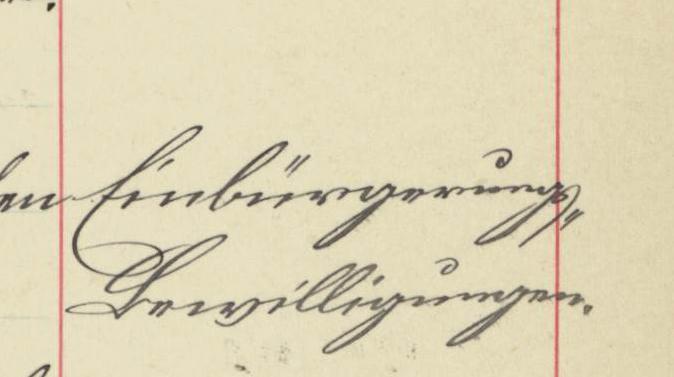 en Einbürgerungs=
Bewilligungen.